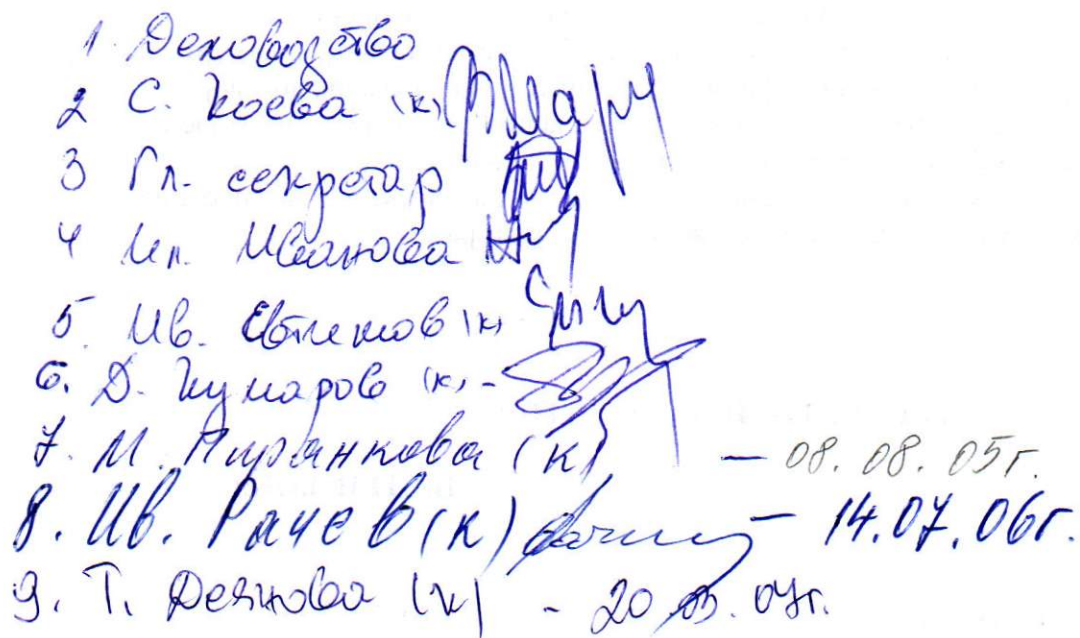 1. Деловодство
2 С. Коева (к)
3 Гл. секретар
4 Ил. Иванова
5. Ив. Евтимов (к)
6. Д. Кумаров (к) -
7. М. Пиринкова (к) – 08. 08. 05г.
8. Ив. Рачев (к) – 14.07.06г.
9. Т. Деянова (к) - 20 .07г.